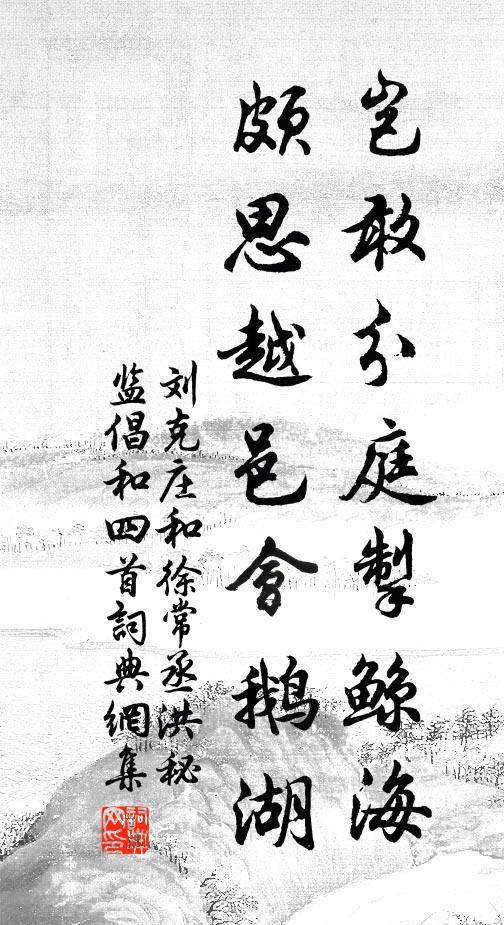 岂敢分庭掣鲸海
颇思越邑會鹅湖
刘克庄和徐常丞洪秘
监倡和四首詞典網集